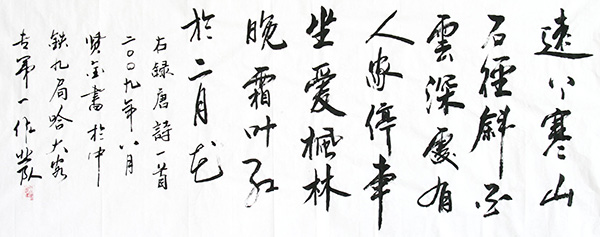 遠上寒山
石徑斜白
雲深處有
人家停車
坐愛楓林
晚霜叶红
於二月花
右録唐詩一首
二〇〇九年八月
贤金書於中
铁九局哈大客
专第一作业队